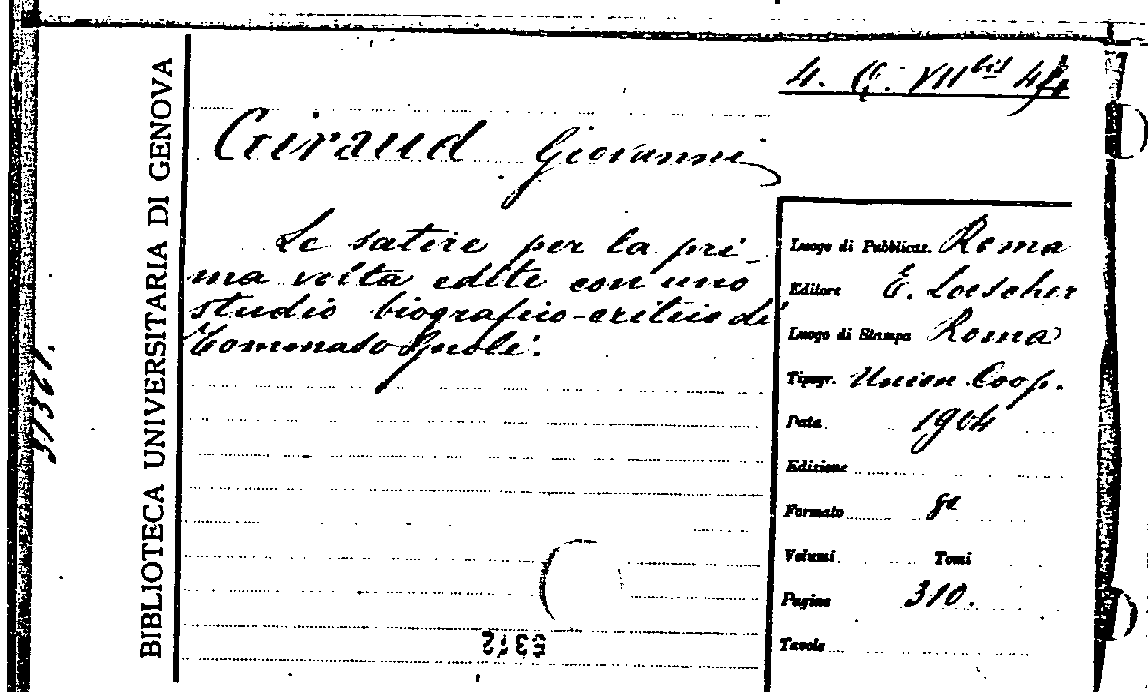 4. Q. VII bis 44
Giraud Giovanni
Le satire per la pri-
ma volta edite con uno
studio biografico-critico di
Tommaso Gnoli.
BIBLIOTECA UNIVERSITARIA DI GENOVA
Luogo di Pubblicaz. Roma
Editore E. Loescher
Luogo di Stampa Roma
Tipogr. Union Coop.
Data 1904
Edizione
Formato 8º
Volumi Tomi
Pagine 310.
Tavole